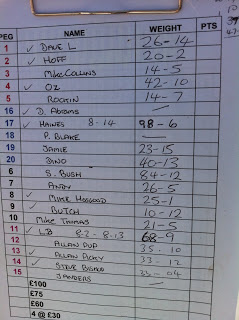 PEG NAME WEIGHT PTS
1 ✓ DAVE L 26-14
2 ✓ HOFF 20-2
3 MIKE COLLINS 14-5
4 ✓ OZ 42-10
5 ROOKIN 14-7
16 ✓ D. ADAMS —
17 ✓ HAINES 8-14 98-6
18 P. BLAKE —
19 JAMIE 23-15
20 DINO 40-13
6 S. BUSH 84-12
7 ANDY 26-5
8 ✓ MIKE HOSGOOD 25-1
9 ✓ BUTCH 10-12
10 MIKE THOMAS 21-5
11 ✓ LB 8-2 - 8-13 68-9
12 ALLAN DUP 35-10
13 ✓ ALLAN 33-12
14 ✓ STEVE 33-04
15 SANDERS —
£100
£75
£60
4 @ £30